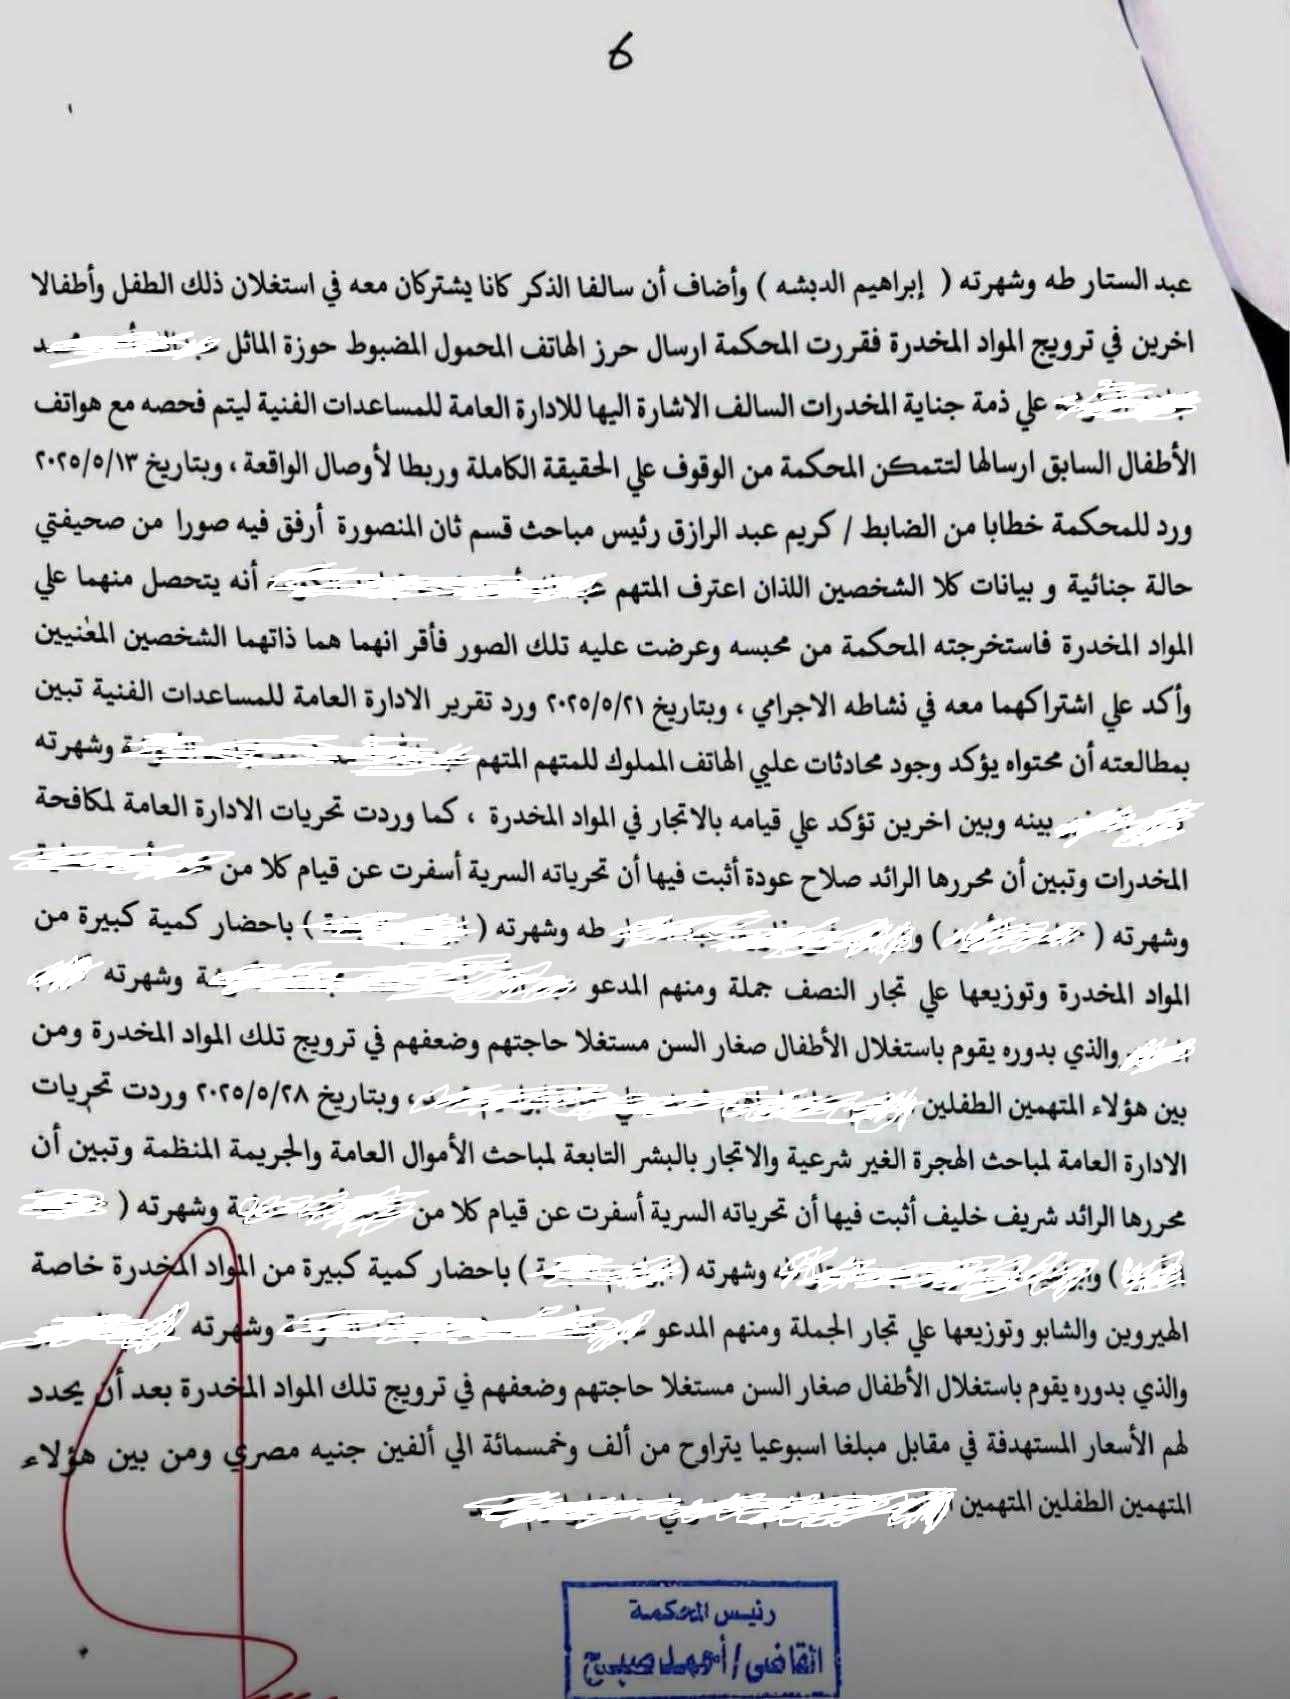 6
عبد الستار طه وشهرته ( إبراهيم الدبشه ) وأضاف أن سالفا الذكر كانا يشتركان معه في استغلان ذلك الطفل وأطفالا
اخرين في ترويج المواد المخدرة فقررت المحكمة ارسال حرز الهاتف المحمول المضبوط حوزة الماثل
علي ذمة جناية المخدرات السالف الاشارة اليها للادارة العامة للمساعدات الفنية ليتم فحصه مع هواتف
الأطفال السابق ارسالها لتتمكن المحكمة من الوقوف علي الحقيقة الكاملة وربطا لأوصال الواقعة ، وبتاريخ ٢٠٢٥/٥/١٣
ورد للمحكمة خطابا من الضابط / كريم عبد الرازق رئيس مباحث قسم ثان المنصورة أرفق فيه صورا من صحيفتي
حالة جنائية و بيانات كلا الشخصين اللذان اعترف المتهم أنه يتحصل منهما علي
المواد المخدرة فاستخرجته المحكمة من محبسه وعرضت عليه تلك الصور فأقر انهما هما ذاتهما الشخصين المعنيين
وأكد علي اشتراكهما معه في نشاطه الاجرامي ، وبتاريخ ٢٠٢٥/٥/٢١ ورد تقرير الادارة العامة للمساعدات الفنية تبين
بمطالعته أن محتواه يؤكد وجود محادثات عليي الهاتف المملوك للمتهم المتهم وشهرته
بينه وبين اخرين تؤكد علي قيامه بالاتجار في المواد المخدرة ، كما وردت تحريات الادارة العامة لمكافحة
المخدرات وتبين أن محررها الرائد صلاح عودة أثبت فيها أن تحرياته السرية أسفرت عن قيام كلا من
وشهرته ( ) طه وشهرته ( ) باحضار كمية كبيرة من
المواد المخدرة وتوزيعها علي تجار النصف جملة ومنهم المدعو وشهرته
والذي بدوره يقوم باستغلال الأطفال صغار السن مستغلا حاجتهم وضعفهم في ترويج تلك المواد المخدرة ومن
بين هؤلاء المتهمين الطفلين ، وبتاريخ ٢٠٢٥/٥/٢٨ وردت تحريات
الادارة العامة لمباحث الهجرة الغير شرعية والاتجار بالبشر التابعة لمباحث الأموال العامة والجريمة المنظمة وتبين أن
محررها الرائد شريف خليف أثبت فيها أن تحرياته السرية أسفرت عن قيام كلا من وشهرته (
) وشهرته ( ) باحضار كمية كبيرة من المواد المخدرة خاصة
الهيروين والشابو وتوزيعها علي تجار الجملة ومنهم المدعو وشهرته
والذي بدوره يقوم باستغلال الأطفال صغار السن مستغلا حاجتهم وضعفهم في ترويج تلك المواد المخدرة بعد أن يحدد
لهم الأسعار المستهدفة في مقابل مبلغا اسبوعيا يتراوح من ألف وخمسمائة الي ألفين جنيه مصري ومن بين هؤلاء
المتهمين الطفلين المتهمين
رئيس المحكمة
القاضي / أحمد صبيح